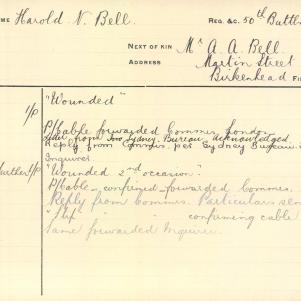 ME Harold N. Bell. REG. &C. 50th Battln
NEXT OF KIN Mr A. A. Bell.
ADDRESS Martin Street
Birkenhead FI
"Wounded"
1/P
P/Cable forwarded Commrs. London
Letter from Sydney Bureau acknowledged
Reply from Commrs. per Sydney Bureau
Inquirer
further 1/P "Wounded 2nd occasion"
P/Cable confirmed forwarded Commrs.
Reply from Commrs. Particulars sen
" " confirming cable
Same forwarded Inquirer.